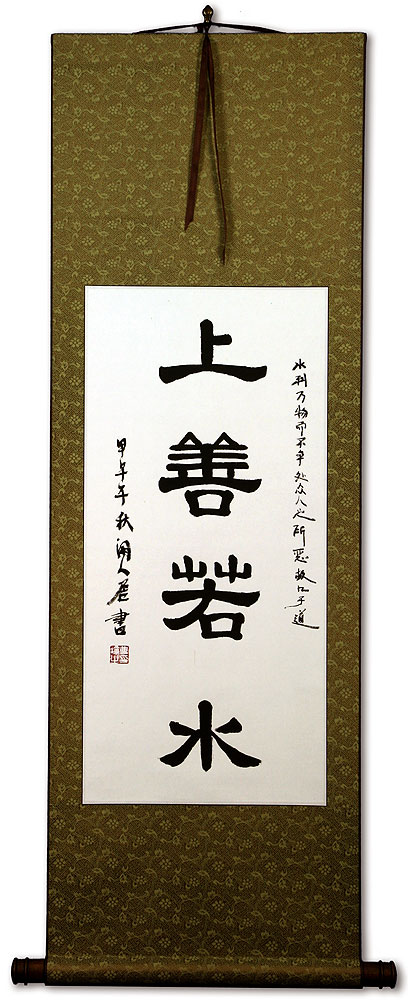 水利万物而不争处众人之所恶故几于道
上善若水
甲午年秋 書